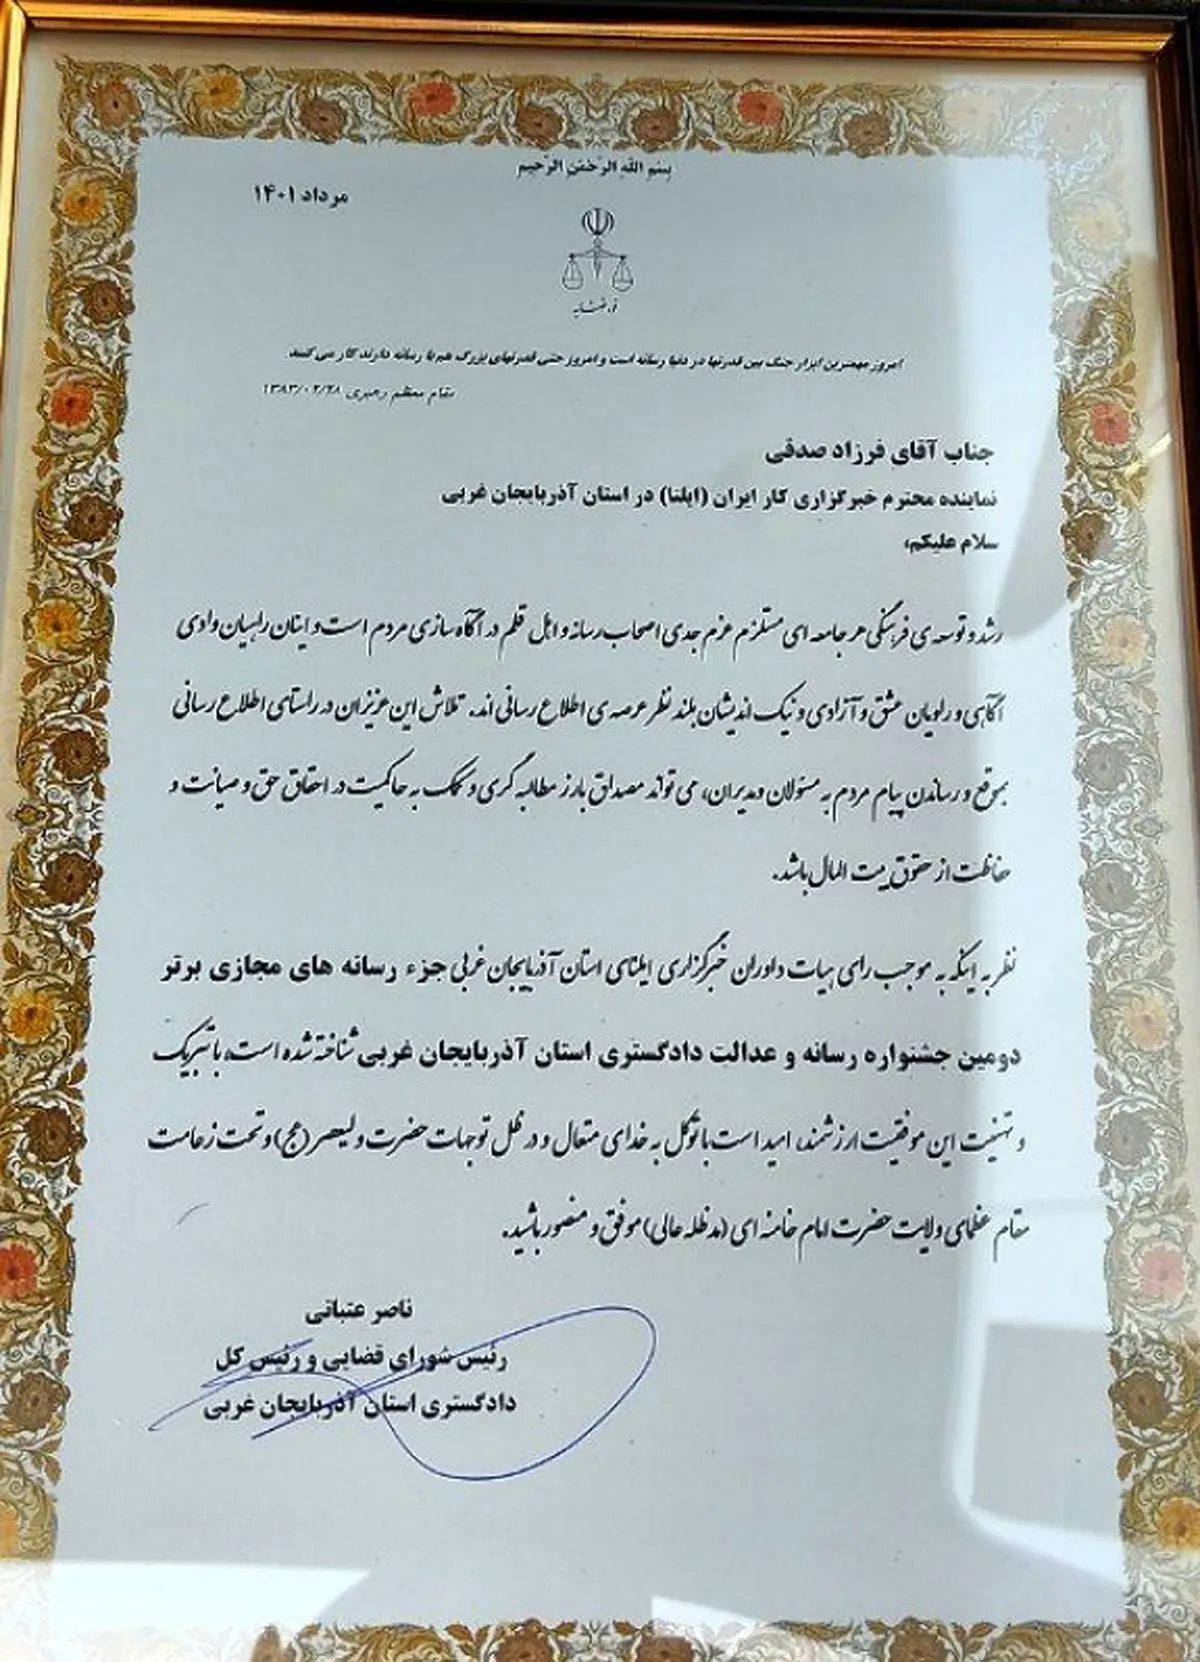 بسم الله الرحمن الرحیم
مرداد ۱۴۰۱
قوه قضائیه
امروز مهمترین ابزار جنگ بین قدرتها در دنیا رسانه است و امروز حتی قدرتهای بزرگ هم با رسانه دارند کار می کنند
مقام معظم رهبری ۱۳۸۳/۰۲/۲۸
جناب آقای فرزاد صدقی
نماینده محترم خبرگزاری کار ایران (ایلنا) در استان آذربایجان غربی
سلام علیکم،
رشد و توسعه ی فرهنگی هر جامعه ای مستلزم عزم جدی اصحاب رسانه و اهل قلم در آگاه سازی مردم است و اینان راهیان وادی
آگاهی و راویان عشق و آزادی و نیک اندیشان بلند نظر عرصه ی اطلاع رسانی اند. تلاش این عزیزان در راستای اطلاع رسانی
بموقع و رساندن پیام مردم به مسئولان و مدیران، می تواند مصداق بارز مطالبه گری و کمک به حاکمیت در احقاق حق و صیانت و
حفاظت از حقوق بیت المال باشد.
نظر به اینکه به موجب رای هیات داوران خبرگزاری ایلنای استان آذربایجان غربی جزء رسانه های مجازی برتر
دومین جشنواره رسانه و عدالت دادگستری استان آذربایجان غربی شناخته شده است، با تبریک
و تهنیت این موفقیت ارزشمند، امید است با توکل به خدای متعال و در ظل توجهات حضرت ولیعصر (عج) و تحت زعامت
مقام عظمای ولایت حضرت امام خامنه ای (مد ظله عالی) موفق و منصور باشید.
ناصر عتباتی
رئیس شورای قضایی و رئیس کل
دادگستری استان آذربایجان غربی